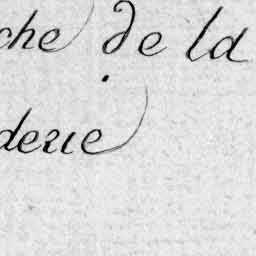 che de la
derie